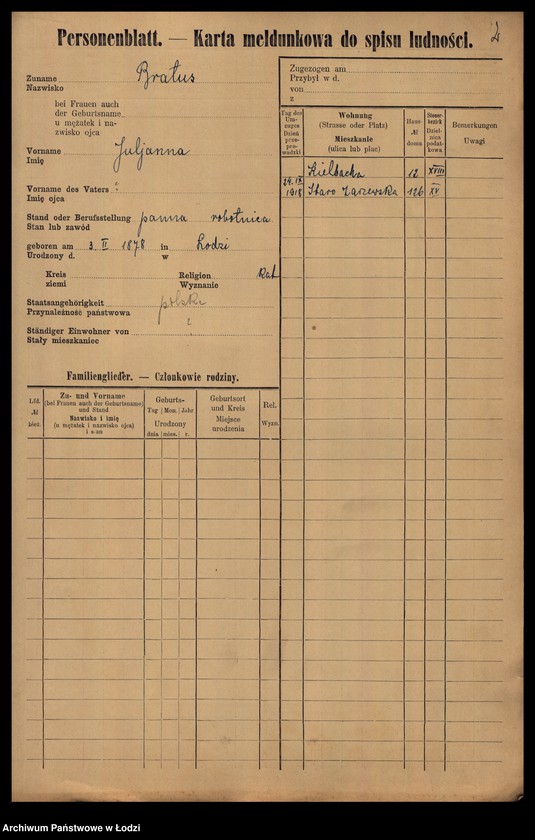 2
Personenblatt. — Karta meldunkowa do spisu ludności.
Zuname Bratus
Nazwisko
bei Frauen auch
der Geburtsname
u mężatek i na-
zwisko ojca
Vorname Juljanna
Imię
Vorname des Vaters
Imię ojca
Stand oder Berufsstellung panna robotnica
Stan lub zawód
geboren am 3. II 1878 in Łodzi
Urodzony d. w
Kreis Religion Kat
ziemi Wyznanie
Staatsangehörigkeit polska
Przynależność państwowa
Ständiger Einwohner von
Stały mieszkaniec
Zugezogen am
Przybył w d.
von
z
Tag des Um-zuges Dzień prze-pro-wadzki
Wohnung
(Strasse oder Platz)
Mieszkanie
(ulica lub plac)
Haus-
№
domu
Steuer-
bezirk
Dziel-
nica
podat-
kowa
Bemerkungen
Uwagi
Kielbacha 12 XVIII
24. IX
1918 Staro Zarzewska 126 XV
Familienglieder. — Członkowie rodziny.
Lfd.
№
bież.
Zu- und Vorname
(bei Frauen auch der Geburtsname)
und Stand
Nazwisko i imię
(u mężatek i nazwisko ojca)
i stan
Geburts-
Tag Mon. Jahr
Urodzony
dnia mies. r.
Geburtsort
und Kreis
Miejsce
urodzenia
Rel.
Wyzn.
Archiwum Państwowe w Łodzi